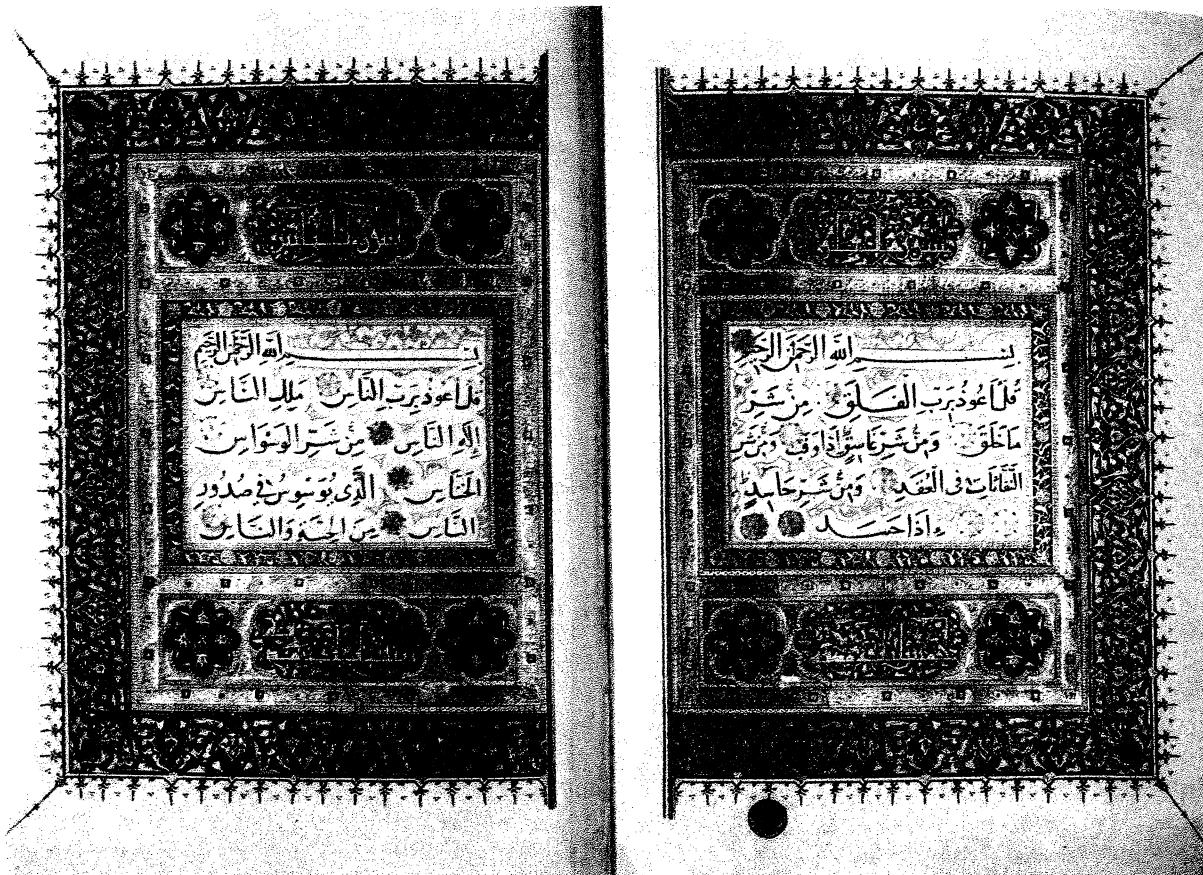 بسم الله الرحمن الرحيم
قل اعوذ برب الفلق من شر
ما خلق ومن شر غاسق اذا وقب ومن شر
النفاثات في العقد ومن شر حاسد
اذا حسد
بسم الله الرحمن الرحيم
قل اعوذ برب الناس ملك الناس
إله الناس من شر الوسواس
الخناس الذي يوسوس في صدور
الناس من الجنة والناس